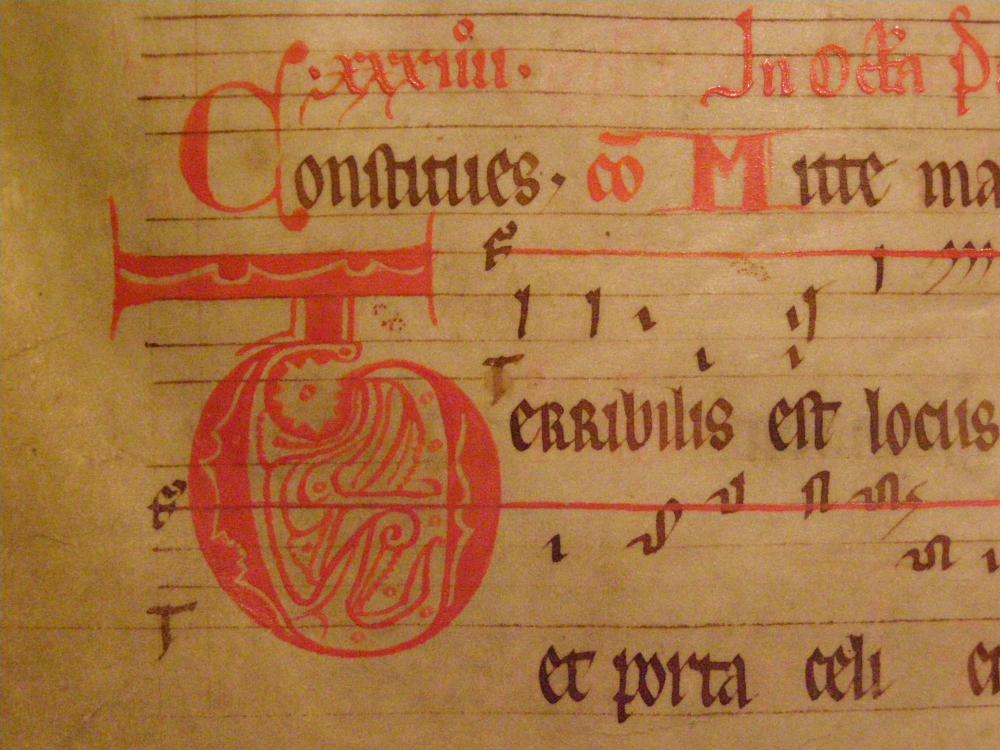 .xxxiiii. In Octa
Constitues. cō Mitte ma
F
Terribilis est locus
F
T
et porta celi